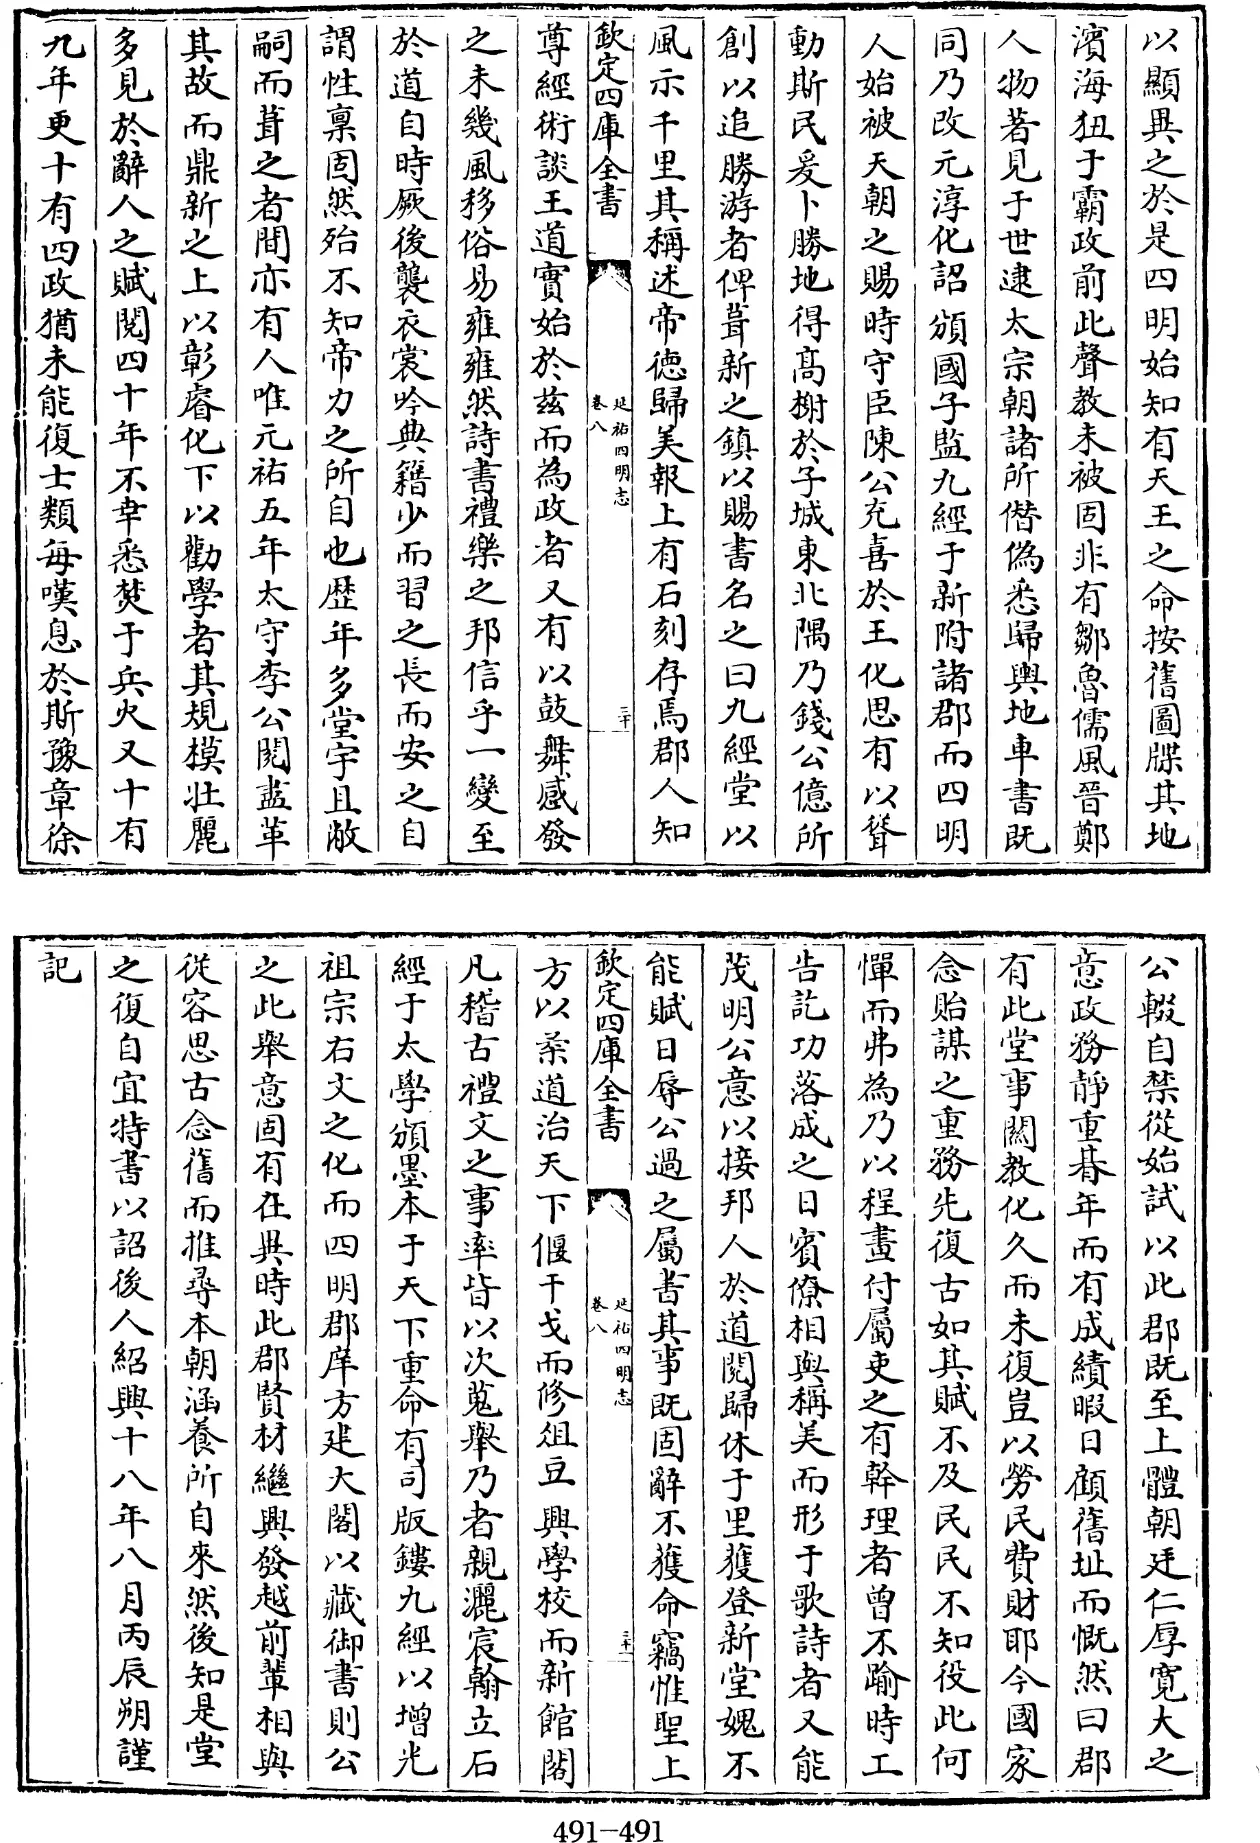 以顯異之於是四明始知有天王之命按舊圖牒其地
濱海狃于霸政前此聲教未被固非有鄒魯儒風晉鄭
人物著見于世逮太宗朝諸所僭偽悉歸輿地車書既
同乃改元淳化詔頒國子監九經于新附諸郡而四明
人始被天朝之賜時守臣陳公充喜於王化思有以聳
動斯民爰卜勝地得髙榭於子城東北隅乃錢公億所
創以追勝游者俾葺新之鎮以賜書名之曰九經堂以
風示千里其稱述帝德歸美報上有石刻存焉郡人知
欽定四庫全書
延祐四明志
卷八
三十
尊經術談王道實始於兹而為政者又有以鼓舞感發
之未幾風移俗易雍雍然詩書禮樂之邦信乎一變至
於道自時厥後襲衣裳吟典籍少而習之長而安之自
謂性稟固然殆不知帝力之所自也歴年多堂宇且敝
嗣而葺之者間亦有人唯元祐五年太守李公閱盡革
其故而鼎新之上以彰睿化下以勸學者其規模壯麗
多見於辭人之賦閱四十年不幸悉焚于兵火又十有
九年更十有四政猶未能復士類每嘆息於斯豫章徐
公輟自禁從始試以此郡既至上體朝廷仁厚寛大之
意政務靜重朞年而有成績暇日顧舊址而慨然曰郡
有此堂事闗教化久而未復豈以勞民費財耶今國家
念貽謀之重務先復古如其賦不及民民不知役此何
憚而弗為乃以程畫付屬吏之有幹理者曾不踰時工
告訖功落成之日賓僚相與稱美而形于歌詩者又能
茂明公意以接邦人於道閱歸休于里獲登新堂媿不
能賦日辱公過之屬書其事既固辭不獲命竊惟聖上
欽定四庫全書
延祐四明志
卷八
三十一
方以柔道治天下偃干戈而修俎豆興學校而新館閣
凡稽古禮文之事率皆以次蒐舉乃者親灑宸翰立石
經于太學頒墨本于天下重命有司版鏤九經以增光
祖宗右文之化而四明郡庠方建大閣以藏御書則公
之此舉意固有在異時此郡賢材繼興發越前輩相與
從容思古念舊而推尋本朝涵養所自來然後知是堂
之復自宜特書以詔後人紹興十八年八月丙辰朔謹
記
491-491